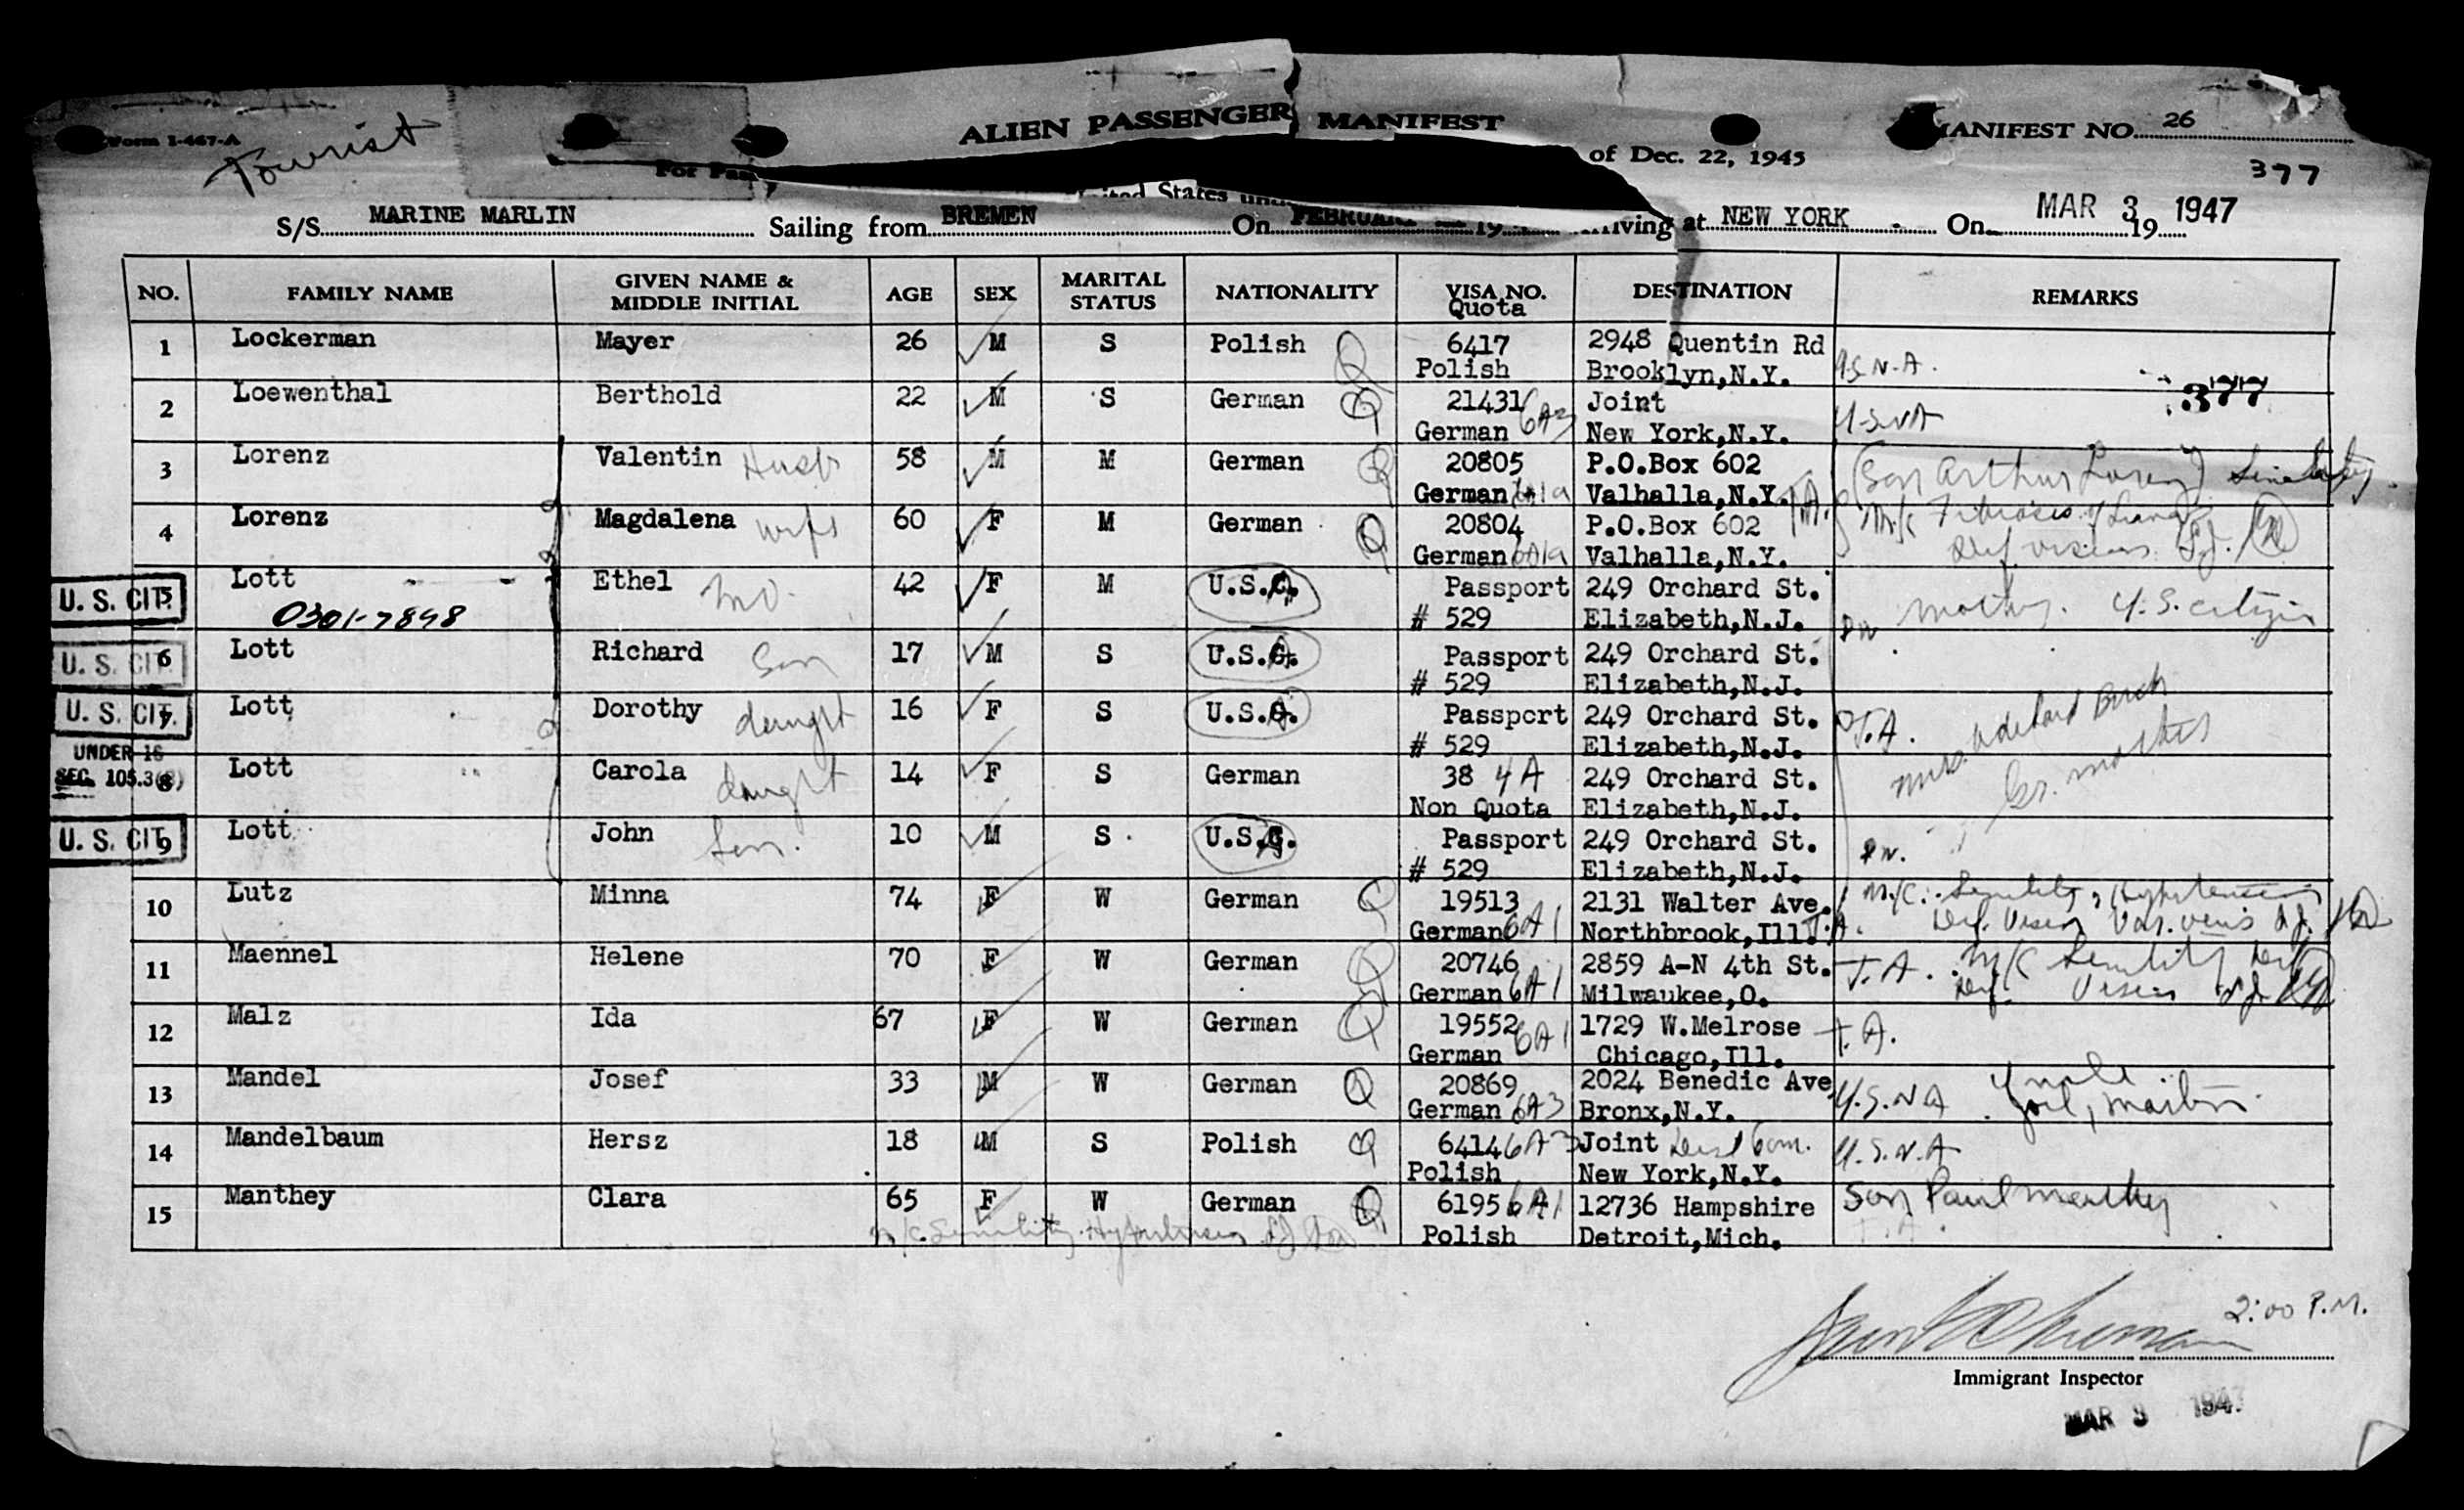 Form I-467-A
Tourist
ALIEN PASSENGER MANIFEST
MANIFEST NO. 26
of Dec. 22, 1945
377
United States
S/S MARINE MARLIN Sailing from BREMEN On FEBRUARY 19 at NEW YORK On MAR 3 19 1947
NO. FAMILY NAME GIVEN NAME & MIDDLE INITIAL AGE SEX MARITAL STATUS NATIONALITY VISA NO. Quota DESTINATION REMARKS
1 Lockerman Mayer 26 M S Polish Q 6417 2948 Quentin Rd
Polish Brooklyn,N.Y.
377
2 Loewenthal Berthold 22 M S German Q 21431 6A3 Joint
German New York,N.Y. USNA
3 Lorenz Valentin Husb 58 M M German Q 20805 P.O.Box 602 (Son Arthur Lorenz) Senility
German 6A1a Valhalla,N.Y.
4 Lorenz Magdalena wife 60 F M German Q 20804 P.O.Box 602 T.A.
German 6A1a Valhalla,N.Y. Def vision
U. S. CIT. 5 Lott Ethel mo. 42 F M U.S. Passport 249 Orchard St. mother. U.S. citizen
0301-7898 # 529 Elizabeth,N.J.
U. S. CIT 6 Lott Richard Son 17 M S U.S. Passport 249 Orchard St.
# 529 Elizabeth,N.J.
U. S. CIT. 7 Lott Dorothy daught 16 F S U.S. Passport 249 Orchard St. T.A.
# 529 Elizabeth,N.J.
UNDER 16
SEC. 105.3( )
8 Lott Carola daught 14 F S German 38 4A 249 Orchard St. Gr. mother
Non Quota Elizabeth,N.J.
U. S. CIT 9 Lott John Son. 10 M S U.S. Passport 249 Orchard St.
# 529 Elizabeth,N.J.
10 Lutz Minna 74 F W German Q 19513 2131 Walter Ave. M/C: Senility, Hypertension
German 6A1 Northbrook,Ill. T.A. Def. Vision Var. veins
11 Maennel Helene 70 F W German Q 20746 2859 A-N 4th St. T.A. M/C Senility
German 6A1 Milwaukee,O. Def. Vision
12 Malz Ida 67 F W German Q 19552 6A1 1729 W.Melrose T.A.
German Chicago,Ill.
13 Mandel Josef 33 M W German Q 20869 2024 Benedic Ave Uncle
German 6A3 Bronx,N.Y. U.S.NA
14 Mandelbaum Hersz 18 M S Polish Q 6414 6A3 Joint U.S.N.A
Polish New York,N.Y.
15 Manthey Clara 65 F W German Q 6195 6A1 12736 Hampshire Son Paul Manthey
Polish Detroit,Mich. T.A.
M/C Senility
2:00 P.M.
Immigrant Inspector
MAR 3 1947